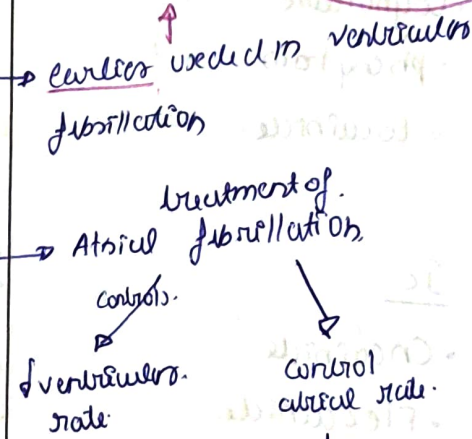 → earlier used in ventricular
fibrillation
treatment of.
→ Atrial fibrillation.
controls.
↓ ventricular.
rate.
control
atrial rate.